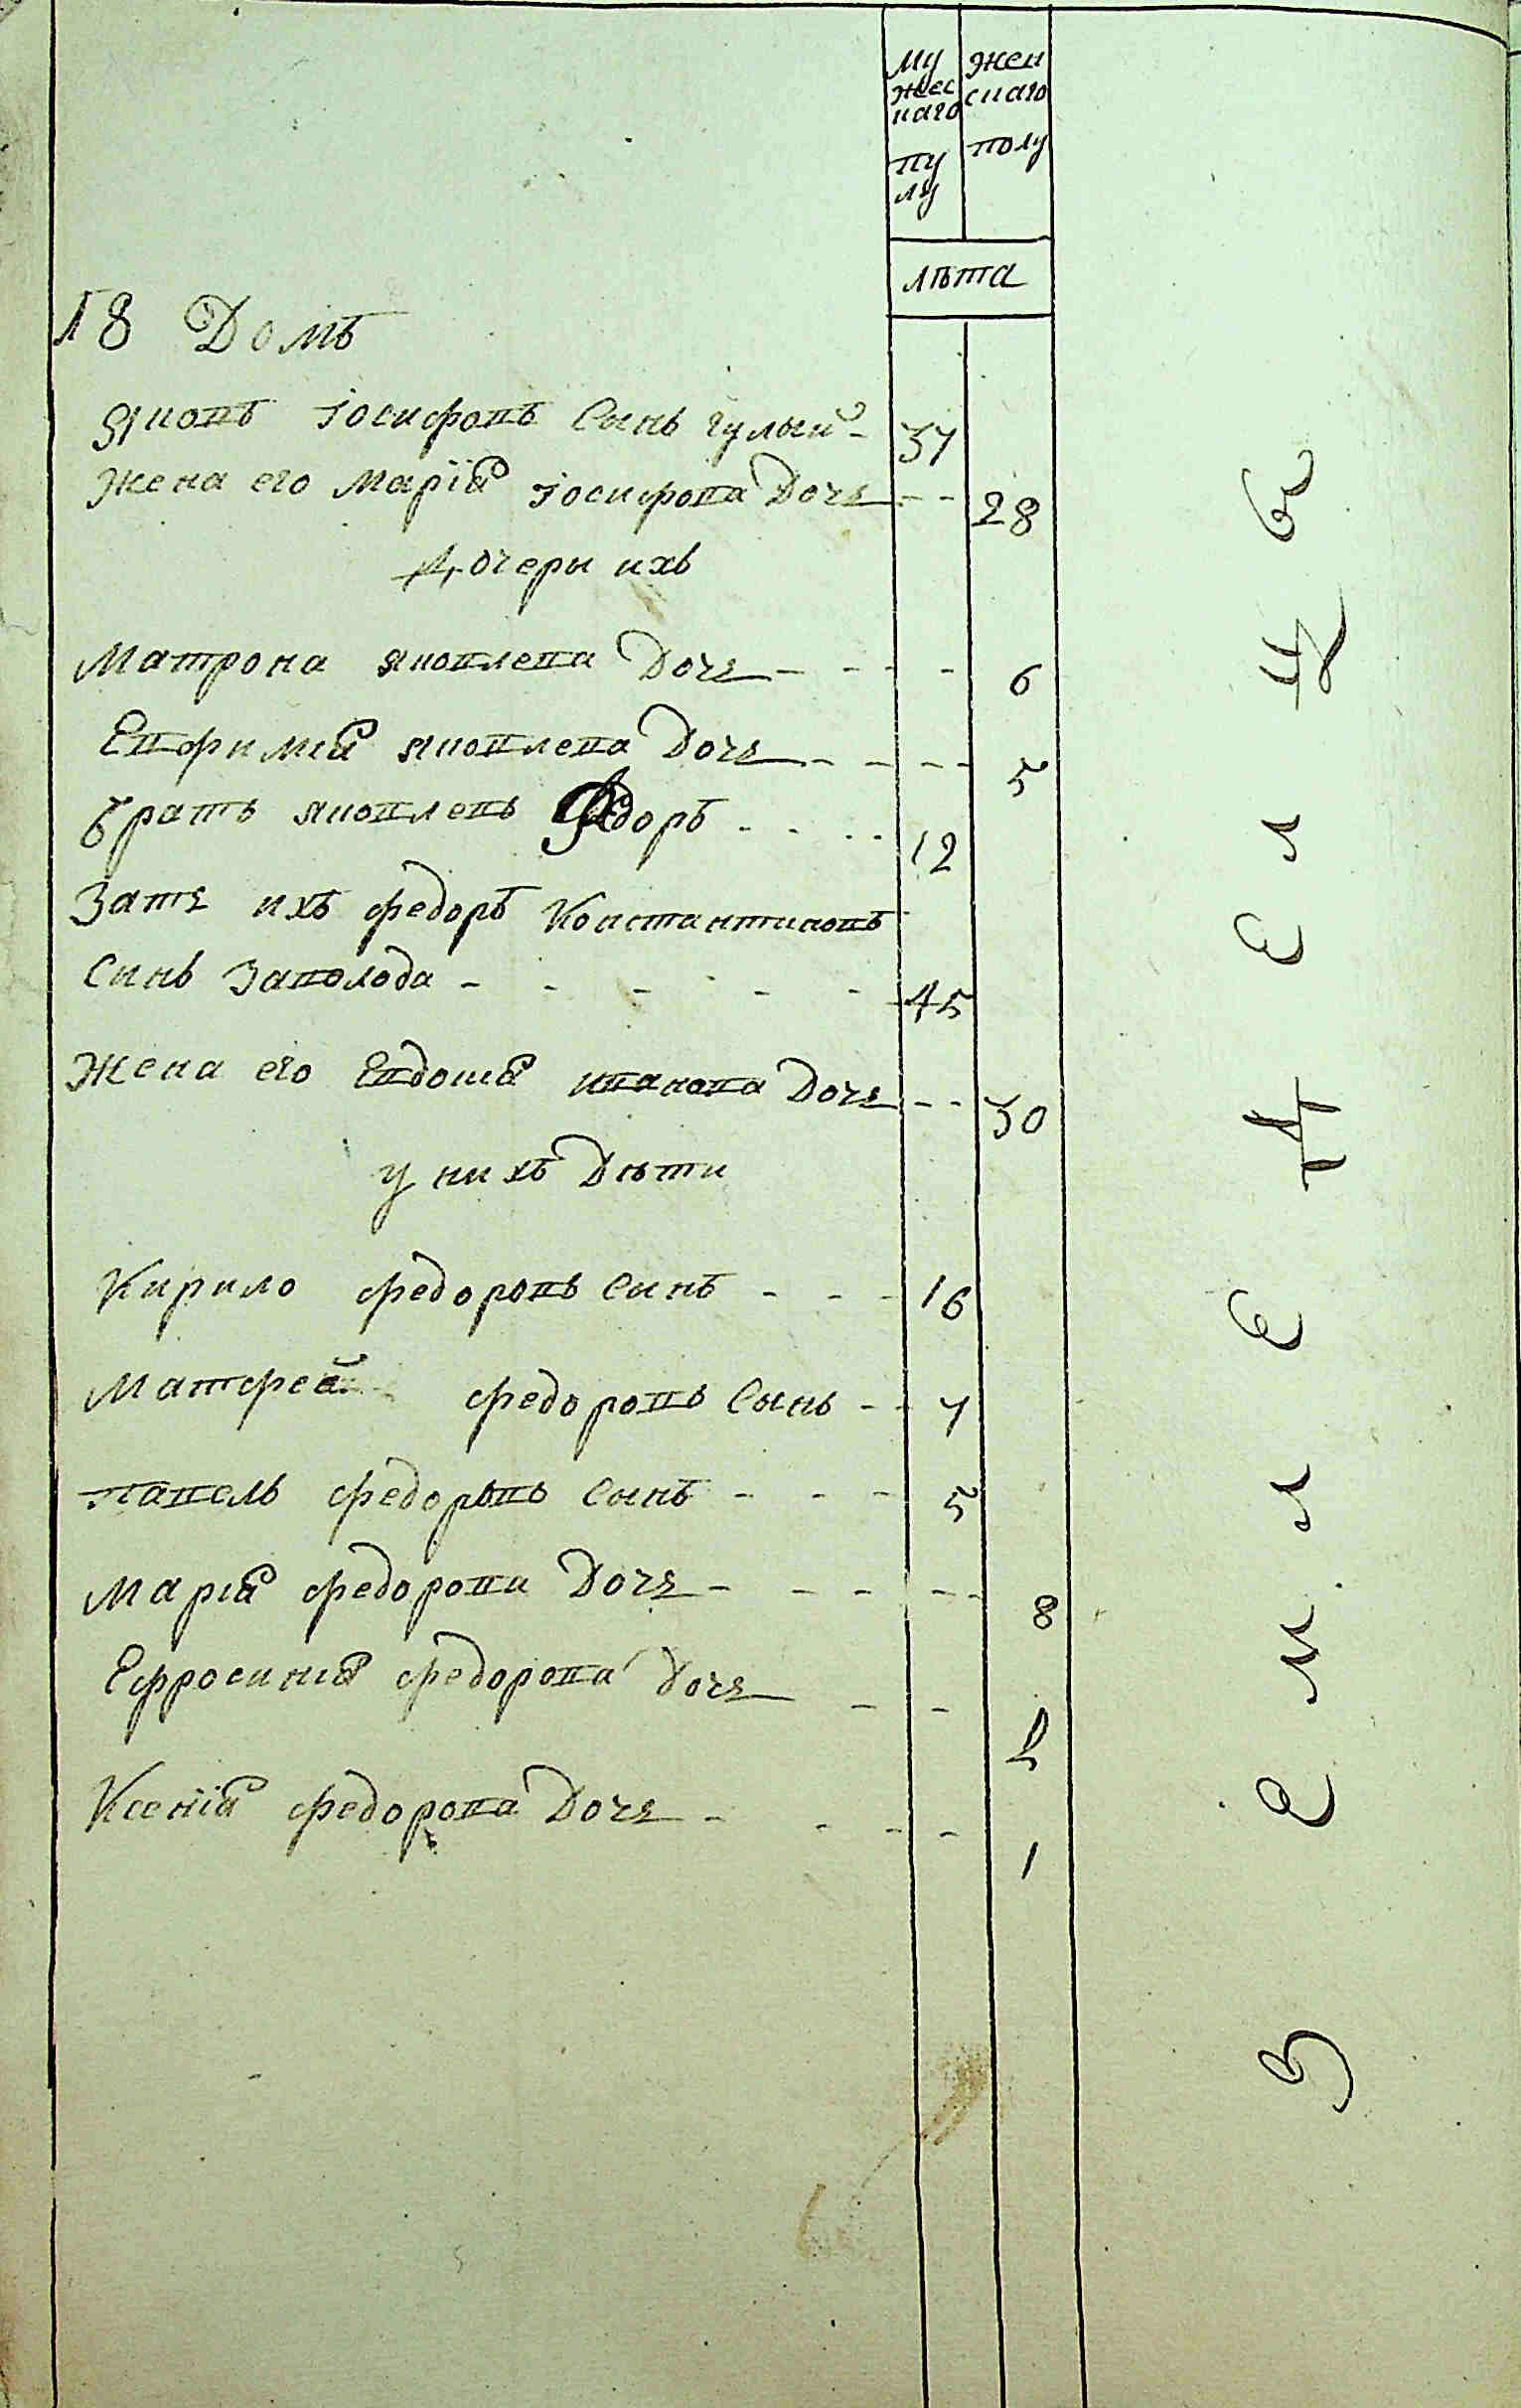 Му жен
жес скаго
каго полу
пу
лу
лѣта
18 Домъ
Яковъ Іосифовъ Синъ Гулый - 37
Жена его Марїя Іосифова Дочь - - 28
Дочеры ихъ
Матрона Яковлева Дочь - - - - 6
Евфимия Яковлева Дочь - - - - 5
братъ Яковлевъ Федоръ - - - - 12
Зать ихъ Федоръ Константиновъ
Синъ Заволода - - - - - - 45
Жена его Евдошя Иванова Дочь - - 30
у нихъ Дѣти
Кирило Федоровъ Синъ - - - 16
Матфей Федоровъ Сынъ - - 7
Павель Федоръвъ Сынъ - - - 5
Марія Федорова Дочь - - - - - 8
Ефросинія Федорова Дочь - - 2
Ксенїя Федорова Дочь - - - - 1
Земледелцы